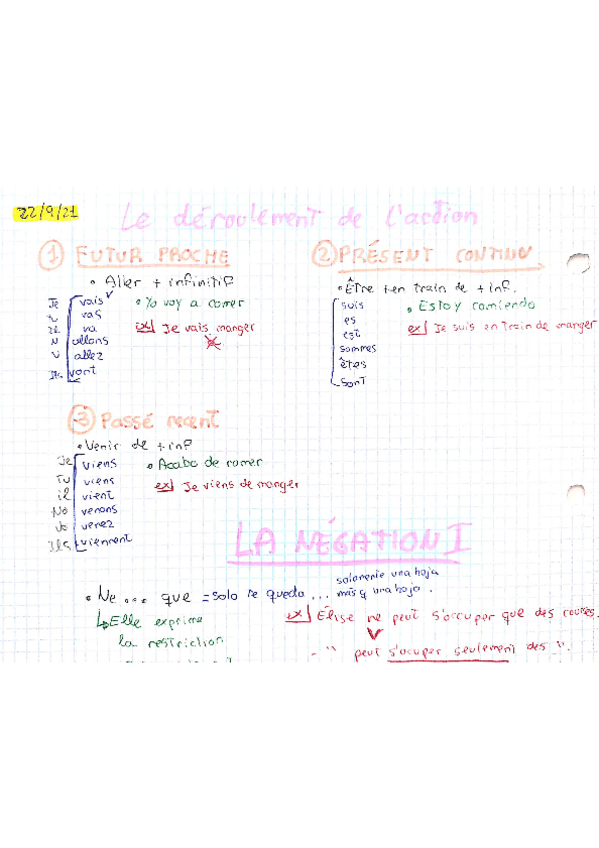 22/9/21
Le déroulement de l'action
① FUTUR PROCHE
• Aller + infinitif
Je vais • Yo voy a comer
tu vas ex| Je vais manger
il va
N allons
V allez
Ils vont
② PRÉSENT CONTINU
• Être + en train de + inf.
suis • Estoy comiendo
es ex| Je suis en train de manger
est
sommes
êtes
sont
③ Passé recent
• Venir de + inf
Je viens • Acabo de comer
Tu viens ex| Je viens de manger
il vient
No venons
Vo venez
Ils viennent
LA NÉGATION I
• Ne ... que = solo te queda ... solamente una hoja
más q una hoja.
↳ Elle exprime
la restriction
ex| Élise ne peut s'occuper que des roses.
- " peut s'occuper seulement des ".